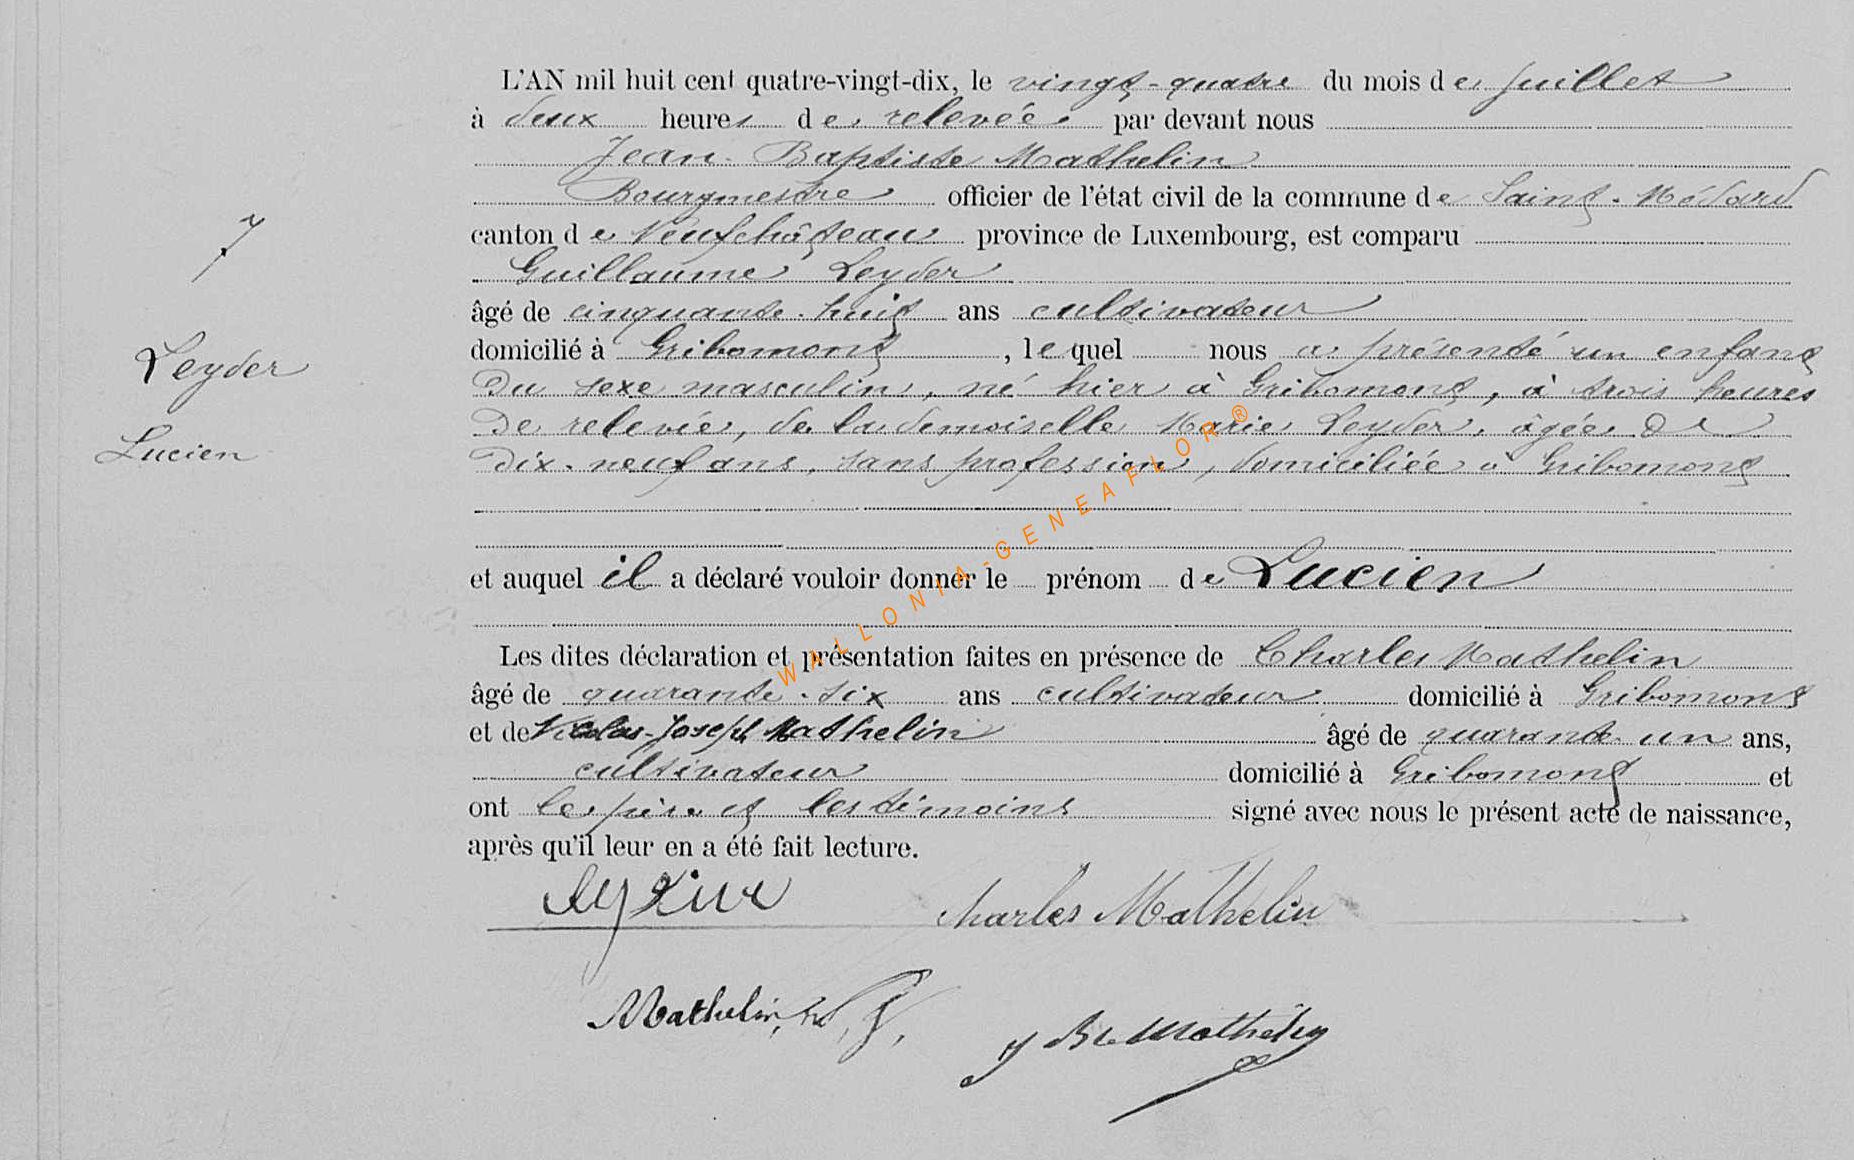 L'AN mil huit cent quatre-vingt-dix, le vingt-quatre du mois de juillet
à deux heures de relevée par devant nous
Jean-Baptiste Mathelin
Bourgmestre officier de l'état civil de la commune de Saint-Médard
canton de Neufchâteau province de Luxembourg, est comparu
Guillaume Leyder
âgé de cinquante-huit ans cultivateur
domicilié à Gribomont, lequel nous a présenté un enfant
du sexe masculin, né hier à Gribomont, à trois heures
de relevée, de la demoiselle Marie Leyder, âgée de
dix-neuf ans, sans profession, domiciliée à Gribomont
et auquel il a déclaré vouloir donner le prénom de Lucien
Les dites déclaration et présentation faites en présence de Charles Mathelin
âgé de quarante-six ans cultivateur domicilié à Gribomont
et de Nicolas-Joseph Mathelin âgé de quarante un ans,
cultivateur domicilié à Gribomont et
ont le père et les témoins signé avec nous le présent acte de naissance,
après qu'il leur en a été fait lecture.
7
Leyder
Lucien
Charles Mathelin
Mathelin, N. J.
J Bte Mathelin
WALLONIA-GENEAFLOR®